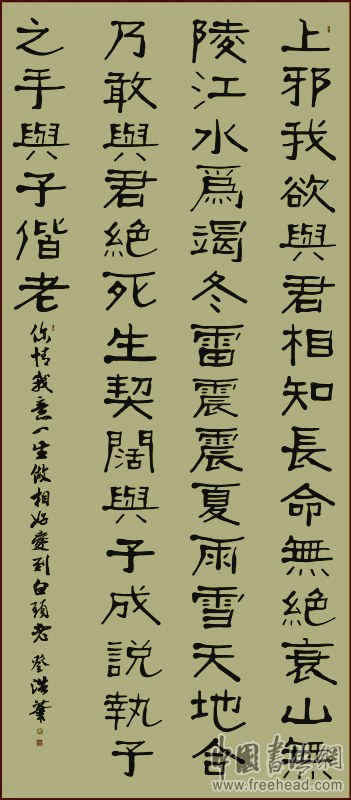 上邪我欲與君相知長命無絶衰山無
陵江水爲竭冬雷震震夏雨雪天地合
乃敢與君絶死生契闊與子成說執子
之手與子偕老
你情我意一生做相好愛到白頭老 登浩
中國書法網
www.freehead.com